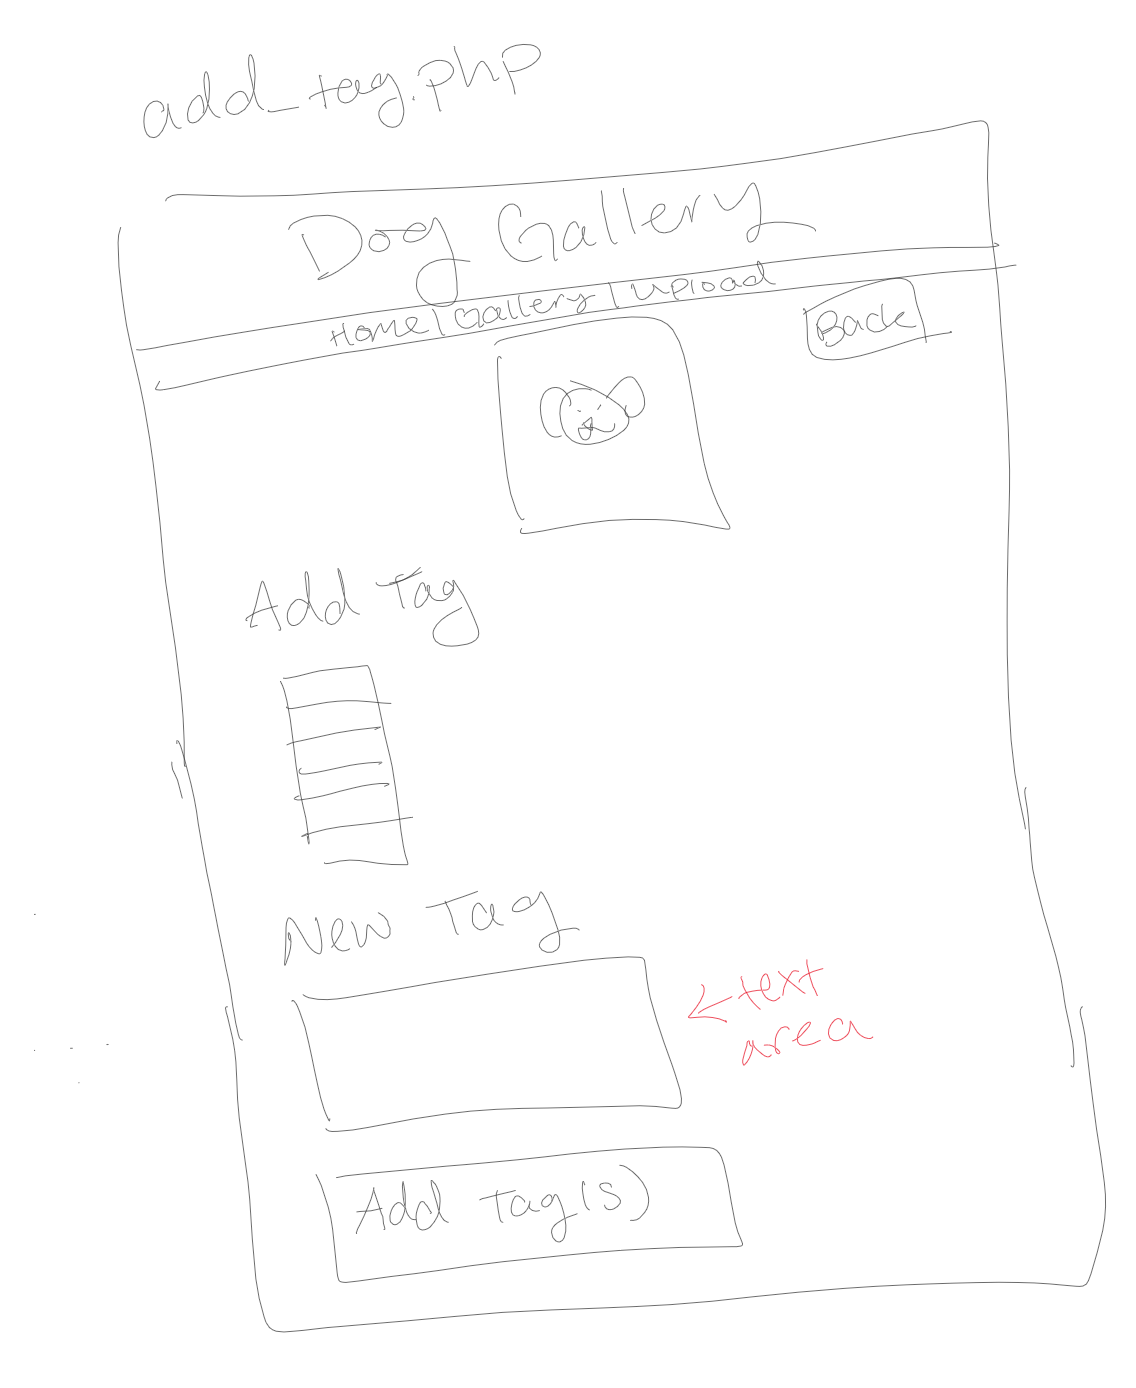 add_tag.php
Dog Gallery
Home | Gallery | Upload
Back
Add Tag
New Tag
← text
area
Add Tag(s)